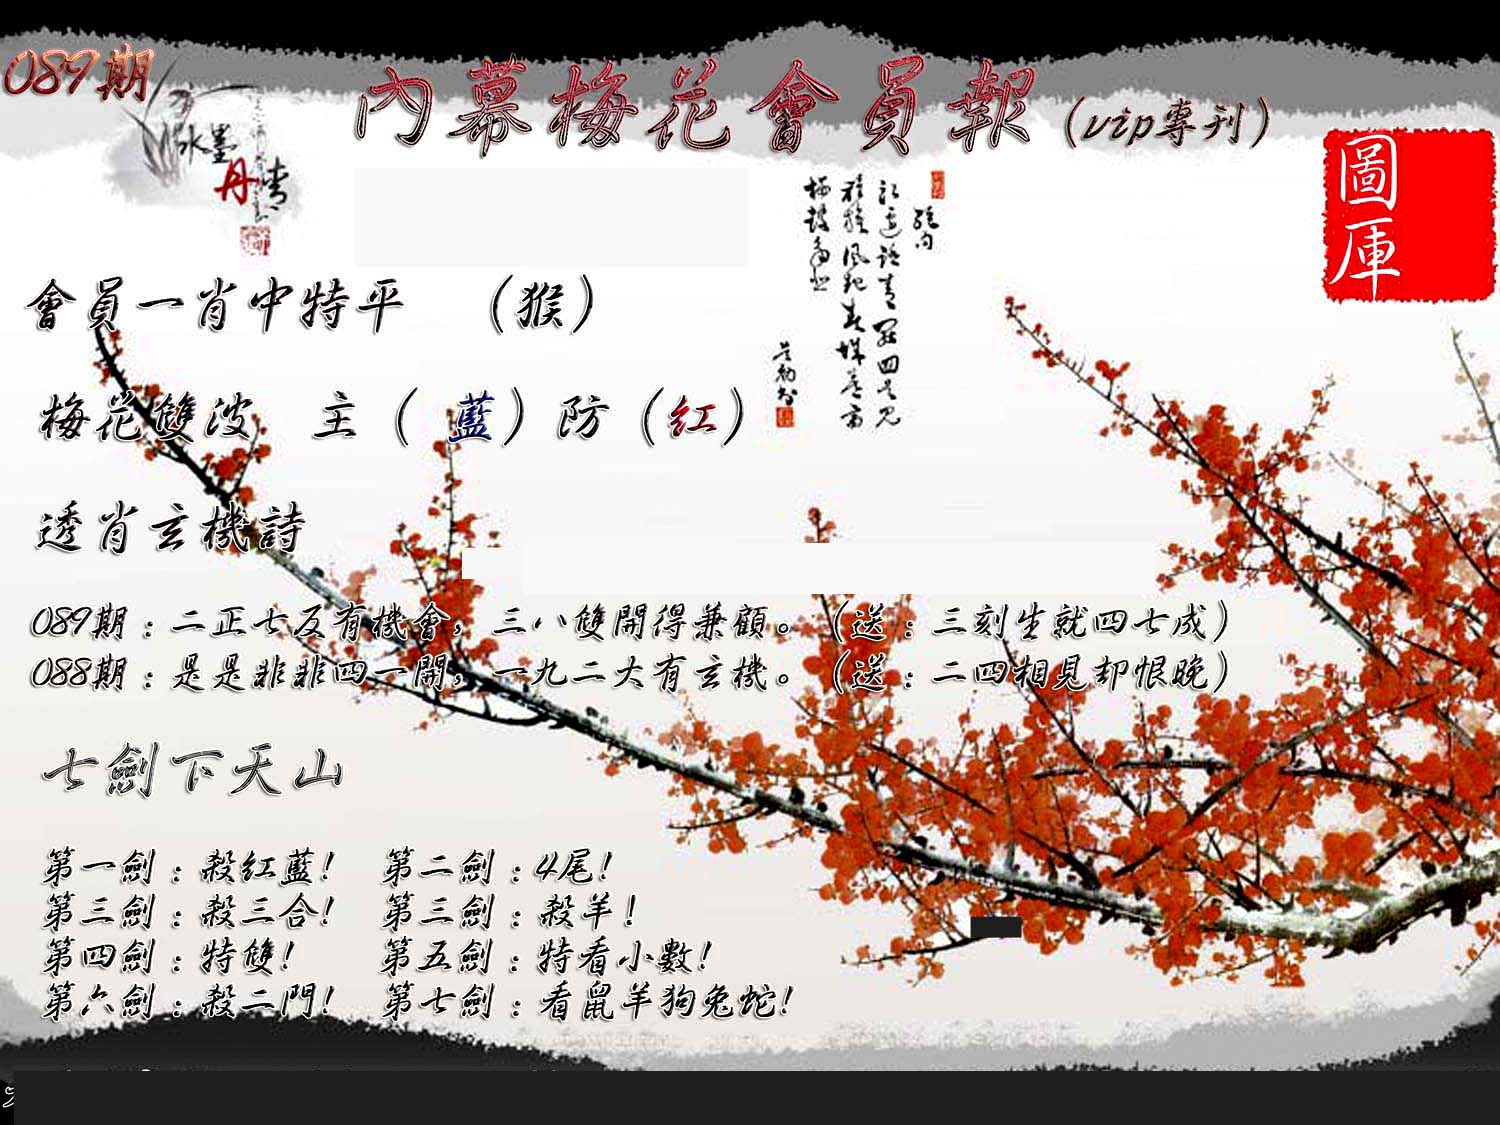 089期
內幕梅花會員報(vip專刊)
水墨
丹青
圖庫
會員一肖中特平 (猴)
梅花雙波 主(藍)防(紅)
透肖玄機詩
089期:二正七反有機會,三八雙開得兼顧。(送:三刻生就四七成)
088期:是是非非四一開,一九二大有玄機。(送:二四相見却恨晚)
七劍下天山
第一劍:殺紅藍! 第二劍:4尾!
第三劍:殺三合! 第三劍:殺羊!
第四劍:特雙! 第五劍:特看小數!
第六劍:殺二門! 第七劍:看鼠羊狗兔蛇!